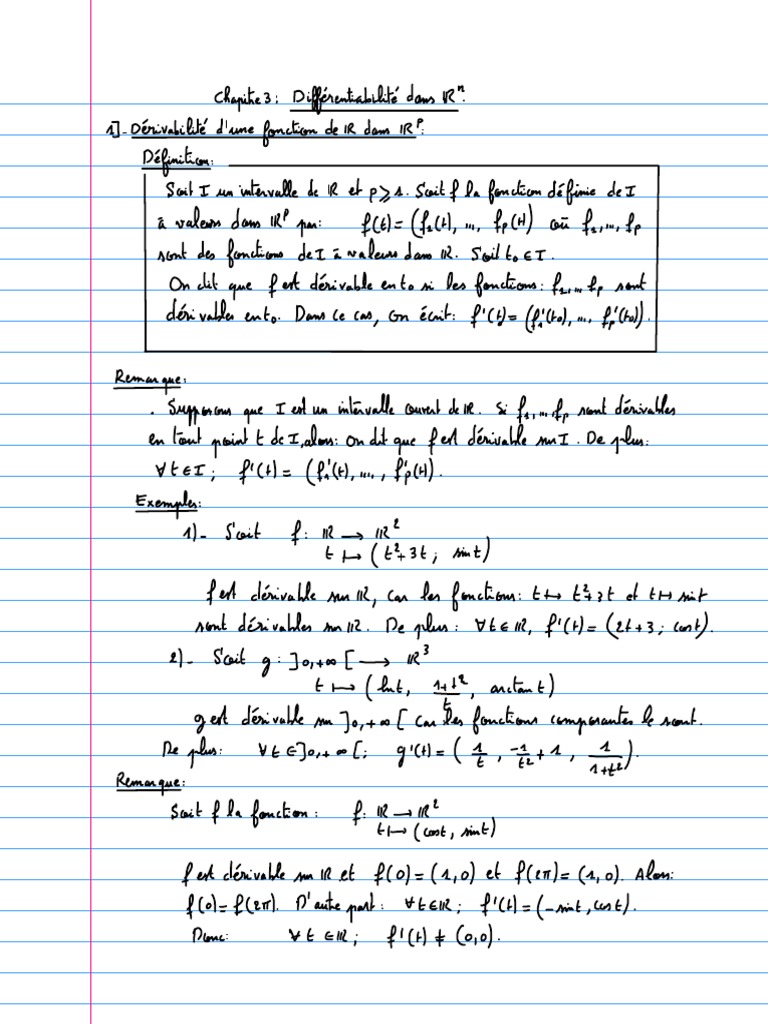 Chapitre 3 : Différentiabilité dans ℝⁿ.
1]- Dérivabilité d'une fonction de ℝ dans ℝᵖ:
Définition:
Soit I un intervalle de ℝ et p ⩾ 1. Soit f la fonction définie de I
à valeurs dans ℝᵖ par: f(t) = (f₁(t), ..., fₚ(t)) où f₁, ..., fₚ
sont des fonctions de I à valeurs dans ℝ. Soit t₀ ∈ I.
On dit que f est dérivable en t₀ si les fonctions: f₁, ... fₚ sont
dérivables en t₀. Dans ce cas, on écrit: f'(t) = (f₁'(t₀), ..., fₚ'(t₀)).
Remarque:
. Supposons que I est un intervalle ouvert de ℝ. Si f₁, ..., fₚ sont dérivables
en tout point t de I, alors: On dit que f est dérivable sur I. De plus:
∀ t ∈ I ; f'(t) = (f₁'(t), ..., fₚ'(t)).
Exemples:
1)- Soit f: ℝ → ℝ²
t ↦ (t² + 3t ; sin t)
f est dérivable sur ℝ, car les fonctions: t ↦ t² + 3t et t ↦ sin t
sont dérivables sur ℝ. De plus : ∀ t ∈ ℝ, f'(t) = (2t + 3 ; cos t).
2)- Soit g : ]0, +∞[ → ℝ³
t ↦ (ln t, (1+t²)/t, arctan t)
g est dérivable sur ]0, +∞[ car les fonctions composantes le sont.
De plus: ∀ t ∈ ]0, +∞[ ; g'(t) = (1/t, -1/t² + 1, 1/(1+t²)).
Remarque:
Soit f la fonction : f: ℝ → ℝ²
t ↦ (cos t, sin t)
f est dérivable sur ℝ et f(0) = (1, 0) et f(2π) = (1, 0). Alors:
f(0) = f(2π). D'autre part : ∀ t ∈ ℝ ; f'(t) = (-sin t, cos t).
Donc: ∀ t ∈ ℝ ; f'(t) ≠ (0, 0).